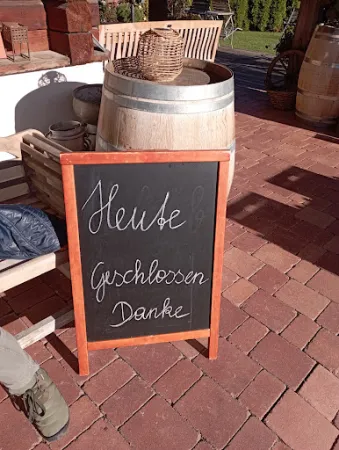 Heute
Geschlossen
Danke